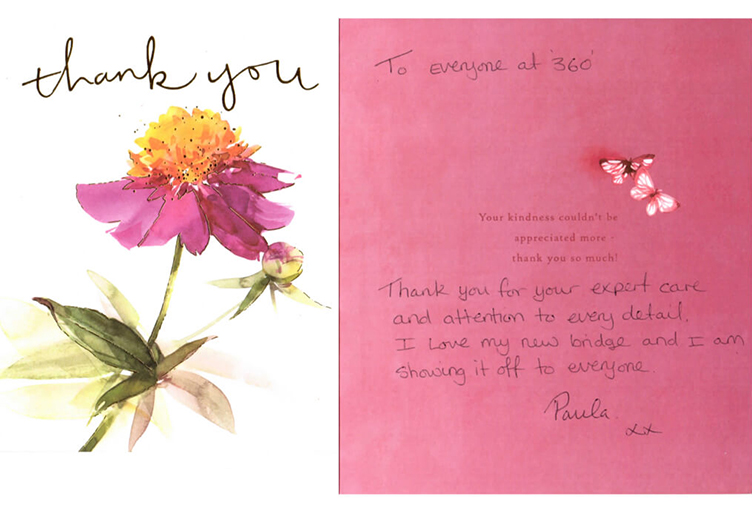 thank you
To everyone at '360'
Your kindness couldn't be
appreciated more -
thank you so much!
Thank you for your expert care
and attention to every detail.
I Love my new bridge and I am
showing it off to everyone.
Paula
xx